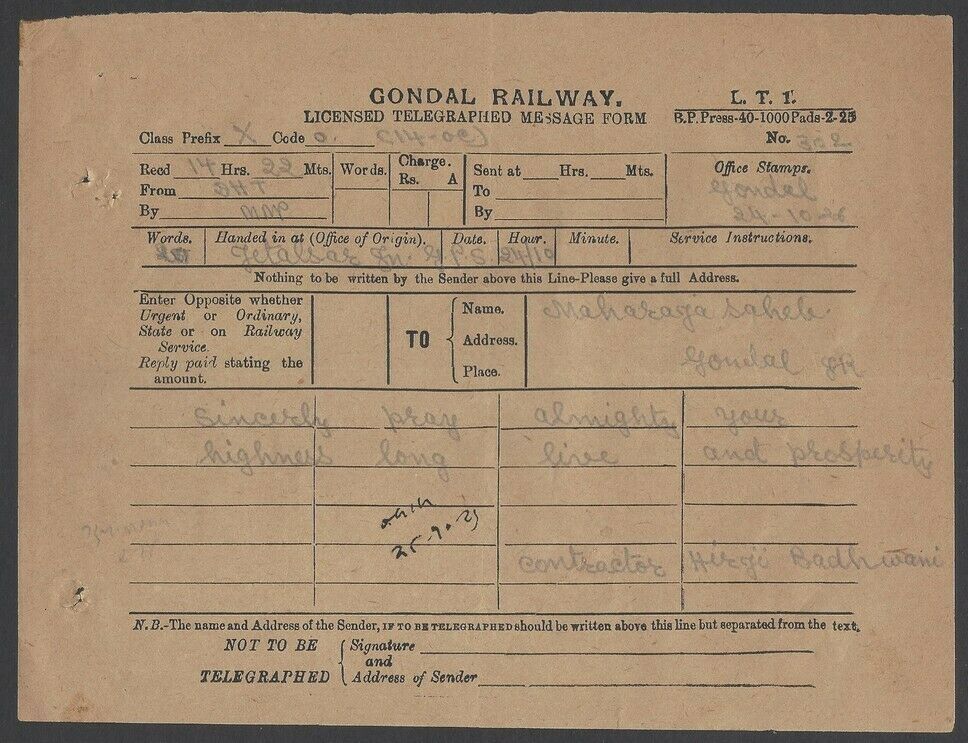 GONDAL RAILWAY.
LICENSED TELEGRAPHED MESSAGE FORM
L. T. 1.
B.P. Press-40-1000 Pads-2-25
Class Prefix X Code O.
No. 302
Recd 14 Hrs. 22 Mts.
From JHT
By
Words.
Charge.
Rs. A
Sent at Hrs. Mts.
To
By
Office Stamps.
Gondal
24-10-26
Words. Handed in at (Office of Origin). Date. Hour. Minute. Service Instructions.
20 Jetalsar Jn. 24/10
Nothing to be written by the Sender above this Line-Please give a full Address.
Enter Opposite whether
Urgent or Ordinary,
State or on Railway
Service.
Reply paid stating the
amount.
TO
Name.
Address.
Place.
Maharaja Saheb
Gondal
sincerly pray almighty your
highness long live and prosperity
contractor Hirji Badhwani
N.B.-The name and Address of the Sender, IF TO BE TELEGRAPHED should be written above this line but separated from the text.
NOT TO BE
TELEGRAPHED
Signature
and
Address of Sender